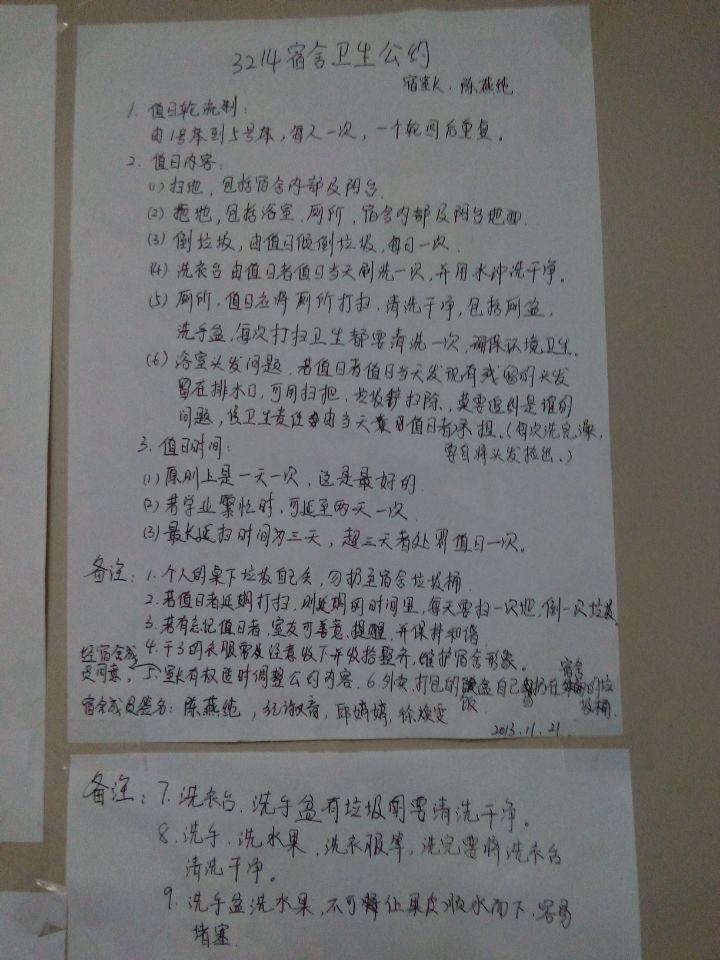 3214宿舍卫生公约
宿室长：陈燕纯
1. 值日轮流制：
由1号床到5号床，每人一次，一个轮回后重复。
2. 值日内容：
(1) 扫地，包括宿舍内部及阳台
(2) 拖地，包括浴室、厕所、宿舍内部及阳台地面.
(3) 倒垃圾，由值日倾倒垃圾，每日一次.
(4) 洗衣台由值日者值日当天刷洗一次，并用水冲洗干净。
(5) 厕所，值日者将厕所打扫、清洗干净，包括厕盆，
洗手盆，每次打扫卫生都要清洗一次，确保环境卫生。
(6) 浴室头发问题，若值日者值日当天发现有残留的头发
留在排水口，可用扫把、垃圾铲扫除，莫要追究是谁的
问题，该卫生责任由当天值日者承担。（每次洗完澡，
要自将头发捡出。）
3. 值日时间：
(1) 原则上是一天一次，这是最好的.
(2) 若学业繁忙时，可延至两天一次
(3) 最长延扫时间为三天，超三天者处罚值日一次。
备注：1. 个人的桌下垃圾自己负，勿扔至宿舍垃圾桶
2. 若值日者延期打扫，则延期的时间里，每天要扫一次地，倒一次垃圾.
3. 若有忘记值日者，室友可善意提醒，并保持和谐
4. 干了的衣服要注意收下并收拾整齐，维护宿舍形象。
经宿舍成员同意。 5. 室长有权适时调整公约内容. 6. 外卖、打包的饭盒自己扔在宿舍的垃圾桶.
宿舍成员签名：陈燕纯，淑，邱婷婷，徐雯
2013.11.21.
备注：7. 洗衣台、洗手盆有垃圾则要清洗干净。
8. 洗手、洗水果、洗衣服等，洗完要将洗衣台
清洗干净。
9. 洗手盆洗水果，不可让果皮顺水而下，容易
堵塞.